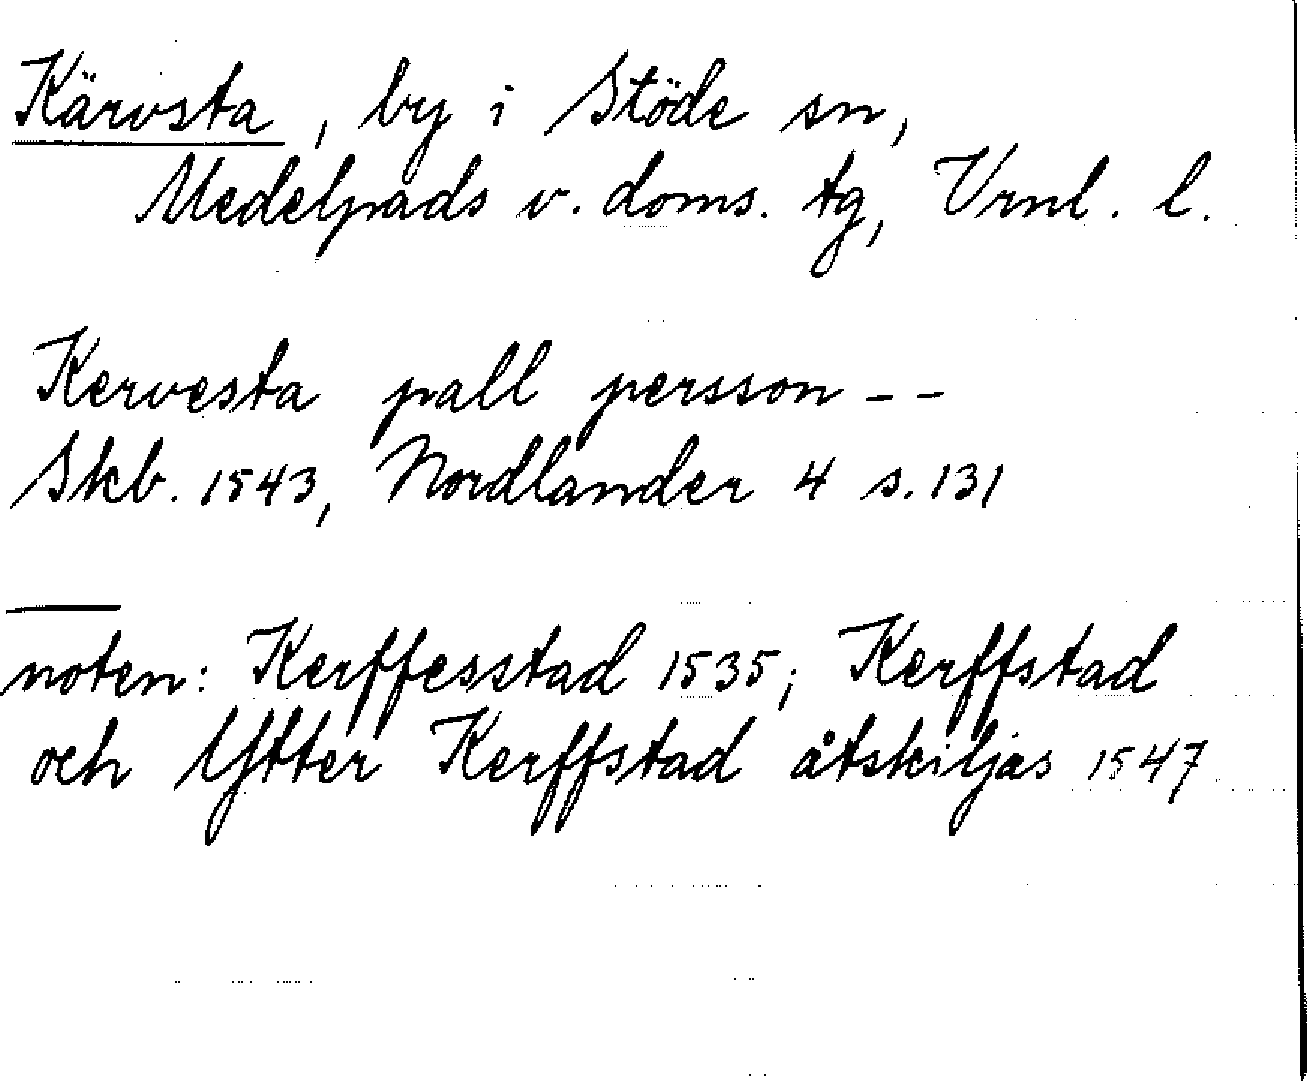 Kärvsta, by i Stöde sn,
Medelpads v. doms. tg, Vrnl. l.
Kervesta pall persson - -
Skb. 1543, Nordlander 4 s. 131
noten: Kerffesstad 1535; Kerffstad
och Ytter Kerffstad åtskiljas 1547